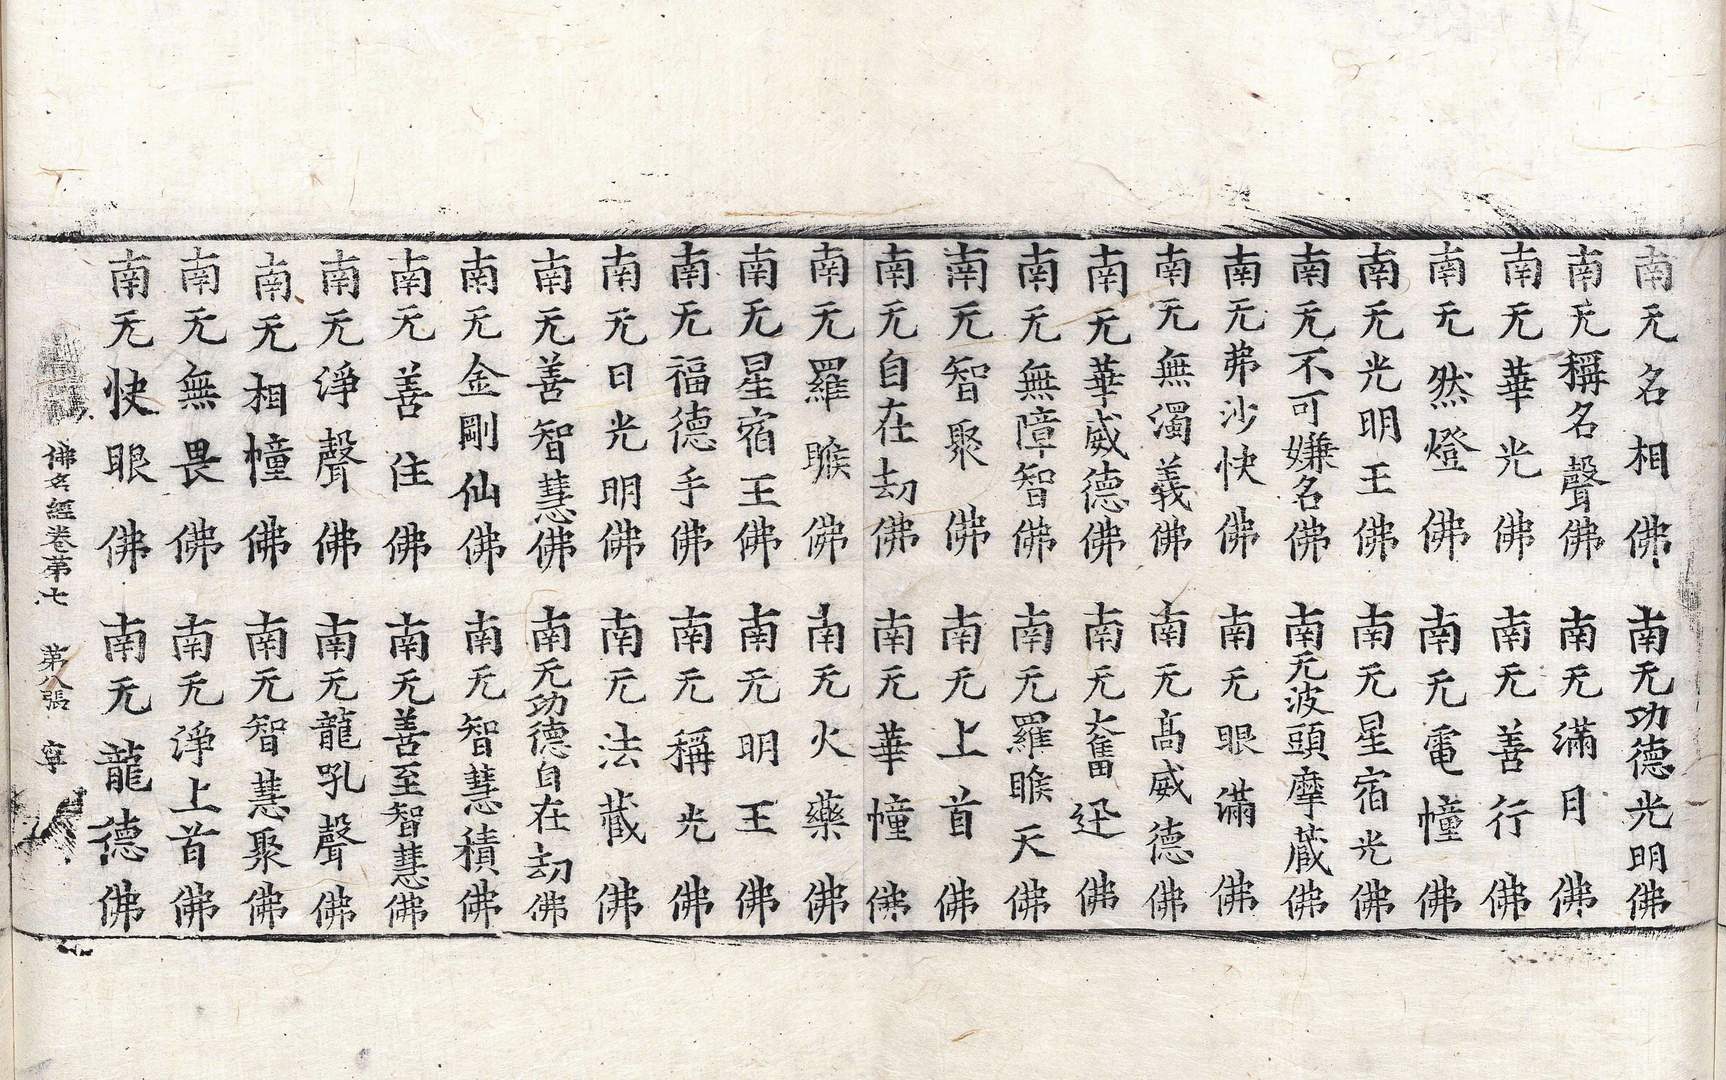 南无名相佛 南无功德光明佛
南无稱名聲佛 南无滿月佛
南无華光佛 南无善行佛
南无然燈佛 南无電幢佛
南无光明王佛 南无星宿光佛
南无不可嫌名佛 南无波頭摩藏佛
南无弗沙快佛 南无眼滿佛
南无無濁義佛 南无高威德佛
南无華威德佛 南无奮迅佛
南无無障智佛 南无羅睺天佛
南无智聚佛 南无上首佛
南无自在劫佛 南无華幢佛
南无羅睺佛 南无火藥佛
南无星宿王佛 南无明王佛
南无福德手佛 南无稱光佛
南无日光明佛 南无法藏佛
南无善智慧佛 南无功德自在劫佛
南无金剛仙佛 南无智慧積佛
南无善住佛 南无善至智慧佛
南无淨聲佛 南无龍吼聲佛
南无相幢佛 南无智慧聚佛
南无無畏佛 南无淨上首佛
南无快眼佛 南无龍德佛
佛名經卷第七 第八張 寧